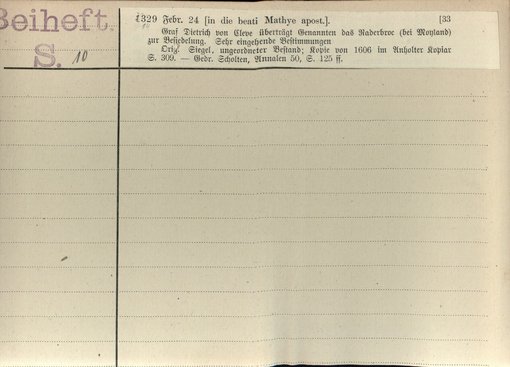 Beiheft.
S. 10
1329 Febr. 24 [in die beati Mathye apost.]. [33
Graf Dietrich von Cleve überträgt Genannten das Raderbroc (bei Moyland)
zur Besiedelung. Sehr eingehende Bestimmungen
Orig. Siegel, ungeordneter Bestand; Kopie von 1606 im Anholter Kopiar
S. 309. — Gedr. Scholten, Annalen 50, S. 125 ff.